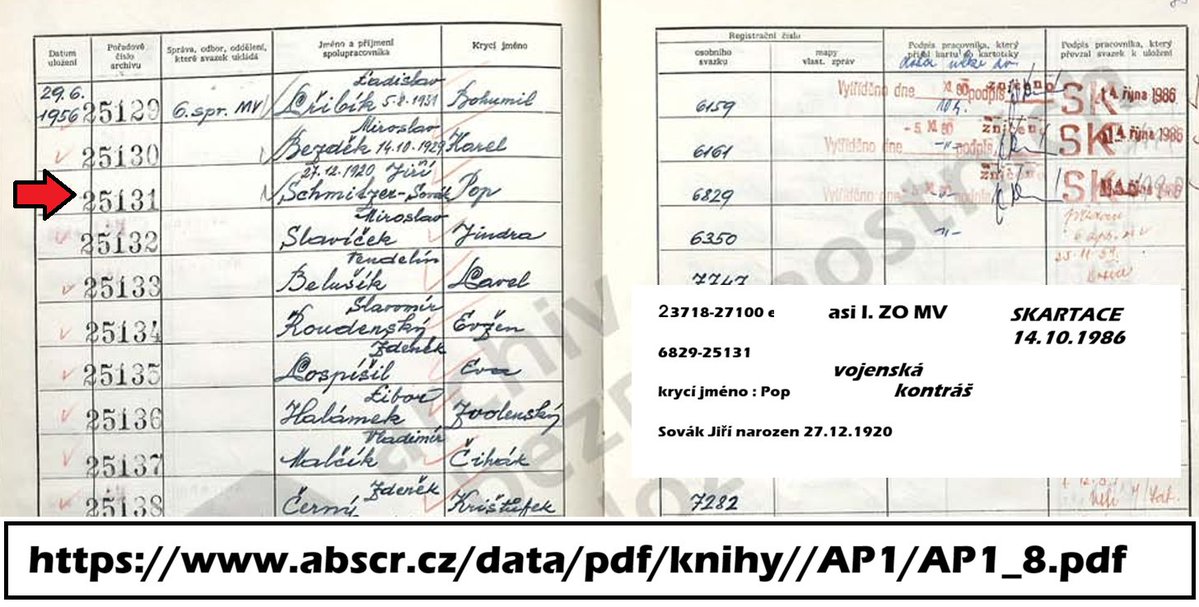 Datum uložení
Pořadové číslo archivu
Správa, odbor, oddělení, které svazek ukládá
Jméno a příjmení spolupracovníka
Krycí jméno
29. 6. 1956
25129
6. spr. MV
Ladislav
Cřibík 5.8.1931
Bohumil
Miroslav
25130
Bezděk 14.10.1929
Karel
27.12.1920 Jiří
25131
Schmitzer-Sovák
Pop
Miroslav
25132
Slavíček
Jindra
Vendelín
25133
Belušík
Karel
Slavomír
25134
Koudenský
Evžen
Zdeněk
25135
Pospíšil
Eva
Libor
25136
Halámek
Zvolenský
Vladimír
25137
Malčík
Čihák
Zdeněk
25138
Černý
Krištůfek
Registrační číslo
osobního svazku
mapy vlast. zpráv
Podpis pracovníka, který
Podpis pracovníka, který převzal svazek k uložení
6159
Vyřízeno dne
podpis
SK
14. října 1986
6161
Vyřízeno dne
podpis
SK
14. října 1986
6829
Vyřízeno dne
podpis
SK
6350
7747
7282
archiv bezpečnostních složek
23718-27100 e
asi I. ZO MV
SKARTACE
14.10.1986
6829-25131
vojenská
kontráš
krycí jméno : Pop
Sovák Jiří narozen 27.12.1920
https://www.abscr.cz/data/pdf/knihy//AP1/AP1_8.pdf